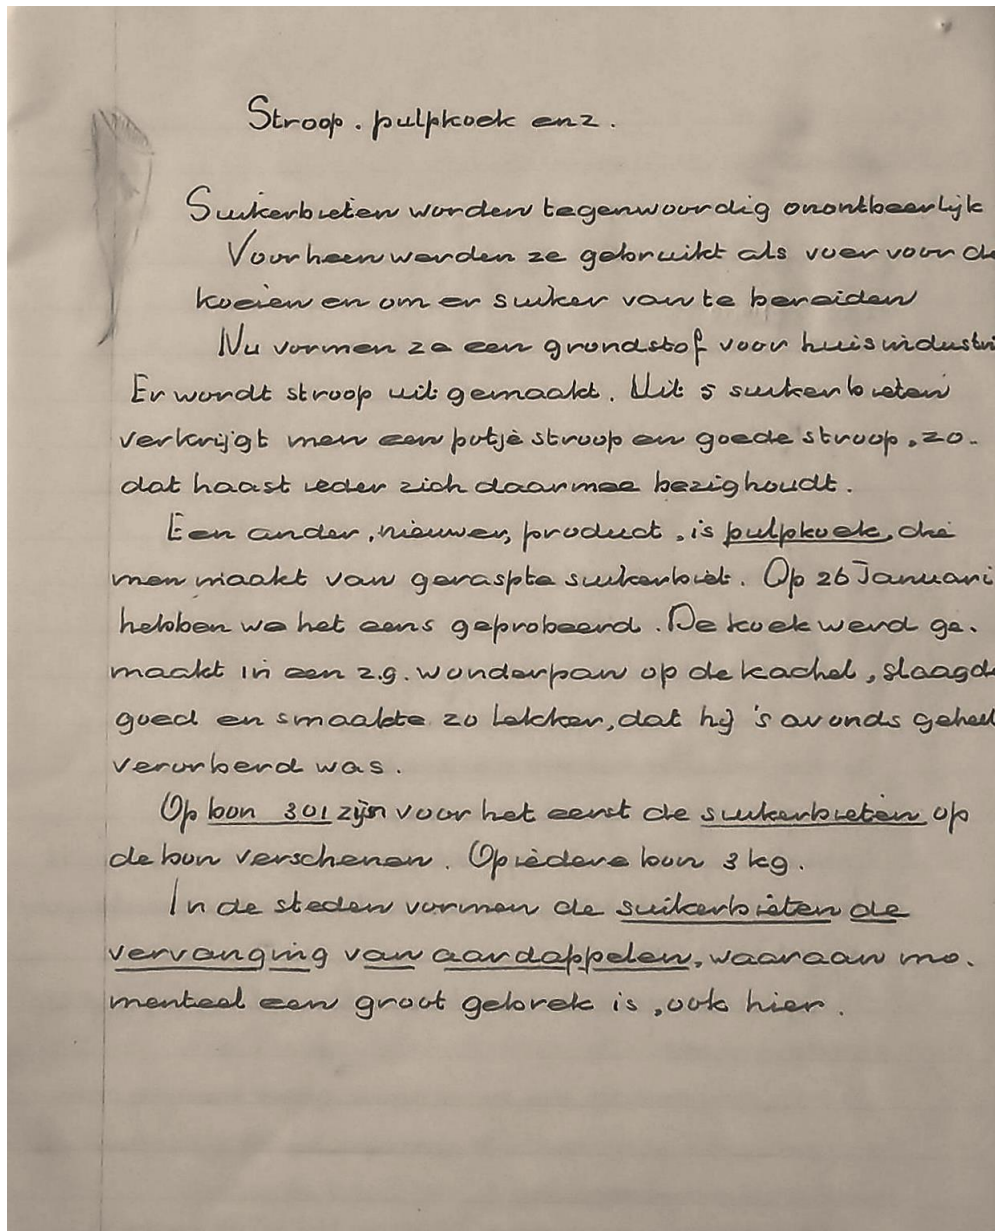 Stroop. pulpkoek enz.
Suikerbieten worden tegenwoordig onontbeerlijk
Voorheen werden ze gebruikt als voer voor de
koeien en om er suiker van te bereiden
Nu vormen ze een grondstof voor huisindustri
Er wordt stroop uit gemaakt. Uit 5 suikerbieten
verkrijgt men een potje stroop en goede stroop, zo-
dat haast ieder zich daarmee bezighoudt.
Een ander, nieuwer, product, is pulpkoek, die
men maakt van geraspte suikerbiet. Op 26 Januari
hebben we het eens geprobeerd. De koek werd ge-
maakt in een z.g. wonderpan op de kachel, slaagde
goed en smaakte zo lekker, dat hij 's avonds geheel
verorberd was.
Op bon 301 zijn voor het eerst de suikerbieten op
de bon verschenen. Op iedere bon 3 kg.
In de steden vormen de suikerbieten de
vervanging van aardappelen, waaraan mo-
menteel een groot gebrek is, ook hier.